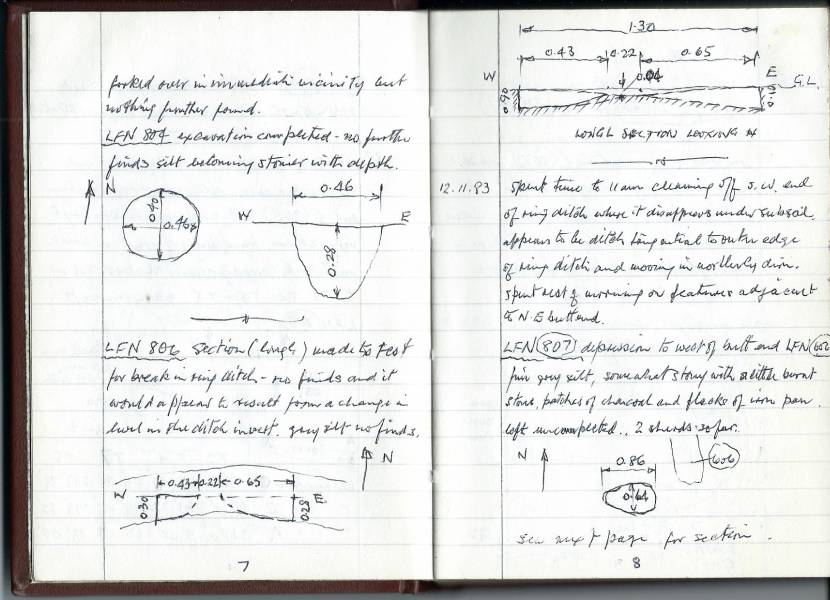 forked over in immediate vicinity but
nothing further found.
LFN 804 excavation completed - no further
finds silt becoming stonier with depth.
N
0.40
0.46
W
E
0.46
0.28
LFN 806 section (Longl) made to test
for break in ring ditch - no finds and it
would appear to result from a change in
level in the ditch invert. grey silt no finds.
N
0.43
0.22
0.65
0.30
E
0.28
7
1.30
0.43
0.22
0.65
W
E
G.L.
0.04
LONGL SECTION LOOKING N
12.11.83
spent time to 11am cleaning off S.W. end
of ring ditch where it disappears under subsoil.
appears to be ditch tangential to outer edge
of ring ditch and moving in northerly dirn.
spent rest of morning on features adjacent
to N.E butt end.
LFN 807 depression to west of butt end LFN 606
fine grey silt, somewhat stony with a little burnt
stone, patches of charcoal and flecks of iron pan.
left uncompleted. 2 sherds so far.
N
0.86
0.64
606
see next page for section.
8